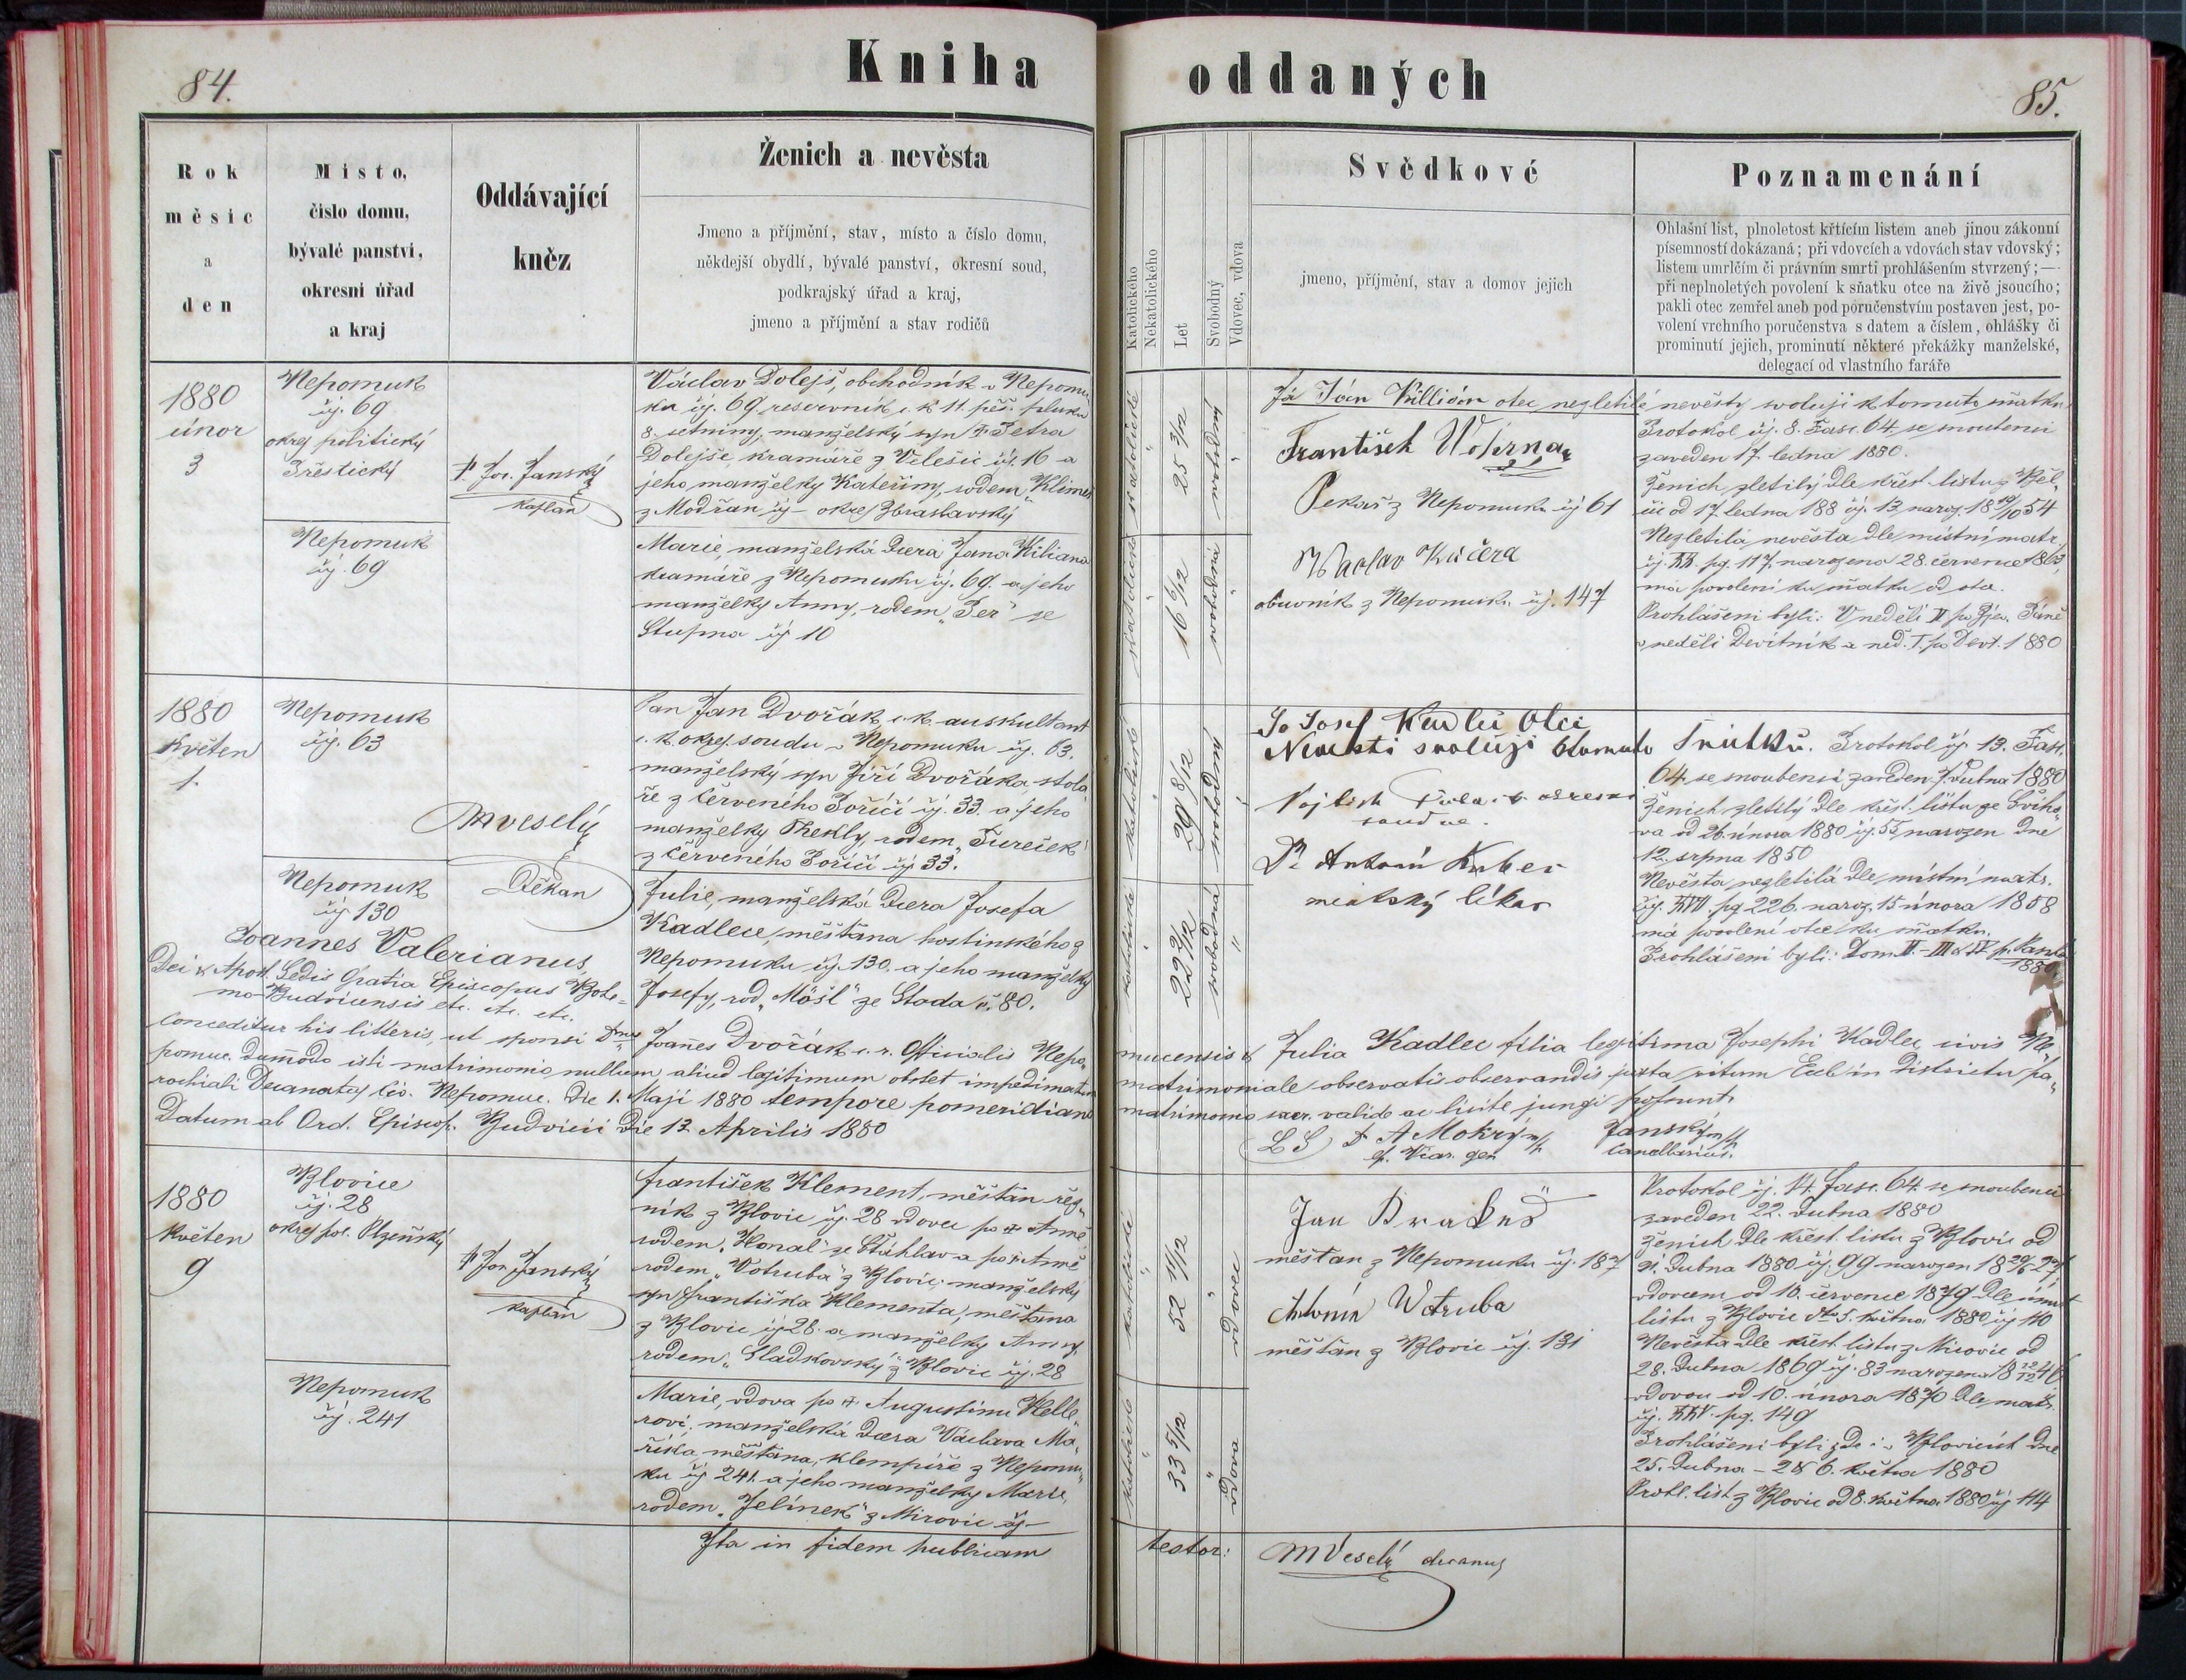 84.
Kniha
oddaných
85.
Rok
měsíc
a
den
Místo,
číslo domu,
bývalé panství,
okresní úřad
a kraj
Oddávající
kněz
Ženich a nevěsta
Jmeno a příjmění, stav, místo a číslo domu,
někdejší obydlí, bývalé panství, okresní soud,
podkrajský úřad a kraj,
jmeno a příjmění a stav rodičů
Katolického
Nekatolického
Let
Svobodný
Vdovec, vdova
Svědkové
jmeno, příjmění, stav a domov jejich
Poznamenání
Ohlašní list, plnoletost křtícím listem aneb jinou zákonní
písemností dokázaná; při vdovcích a vdovách stav vdovský;
listem umrlčím či právním smrti prohlášením stvrzený;—
při neplnoletých povolení k sňatku otce na živě jsoucího;
pakli otec zemřel aneb pod poručenstvím postaven jest, po-
volení vrchního poručenstva s datem a číslem, ohlášky či
prominutí jejich, prominutí některé překážky manželské,
delegací od vlastního faráře
1880
únor
3
Nepomuk
čj. 69
okrej politický
Přeštický
P. Jos. Janský
kaplan
Václav Dolejš, obchodník v Nepomu
ku čj. 69 reservník c. k. 11. pěš. pluku
8. setniny, manželský syn † Petra
Dolejše kramáře z Velešic čj. 16 a
jeho manželky Kateřiny, rodem "Klimeš
z Modřan čj – okrej Zbraslavský
Nepomuk
čj. 69
Marie, manželská dcera Jana Kiliana
kramáře z Nepomuku čj. 69. a jeho
manželky Anny, rodem "Per" ze
Stupna čj 10
katolické
25 3/12
svobodný
katolické
16 6/12
svobodná
Já Ján Killián otec nezletilé nevěsty svoluji k tomuto sňatku
František Woherna
Pekař z Nepomuku čj 61
Waclav Kučera
obuvník z Nepomuku čj. 147
Protokol čj. 8. Fasc. 64. se snoubenci
zaveden 17. ledna 1880.
Ženich zletilý dle křest. listu z Vel-
šic od 17. ledna 188 čj. 13 naroz. 18 19/10 54
Nezletilá nevěsta dle místní matr.
pg. 117. narozena 28. července 1863,
má povolení ku sňatku od otce.
Prohlášeni byli: V neděli II po Zjev. Páně
v neděli Devítník a ned. I. po Devt. 1880
1880
Květen
1.
Nepomuk
čj. 63
MVeselý
Děkan
Pan Jan Dvořák c. k. auskultant
c. k. okrej. soudu v Nepomuku čj. 63.
manželský syn Jiří Dvořáka, stola
ře z Červeného Poříčí čj. 33. a jeho
manželky Thekly, rodem "Tureček
z Červeného Poříčí čj 33.
Nepomuk
čj. 130
Julie, manželská dcera Josefa
Kadlece, měštana hostinského z
Nepomuku čj. 130. a jeho manželky
Josefy, rod. "Mösl" ze Stoda č. 80.
katolické
29 8/12
svobodný
katolické
22 2/12
svobodná
Jo Josef Kadlec Otec
Newěsti svoluzi ktomuto Sňutku.
Vojtěch
Dr Antonín Kuber
městský lékař
Protokol čj. 13. Fasc.
64. se snoubenci zaveden 7. dubna 1880
Ženich zletilý dle křest. listu ze Šviho-
va od 26. února 1880 čj. 55 narozen dne
12. srpna 1850
Nevěsta nezletilá dle místní matr.
pg 226. naroz. 15 února 1858
má povolení otce ku sňatku.
Prohlášeni byli: Dom. II. – III & IV p. Pascha
1880.
Joannes Valerianus
Dei & Apost. Sedis Gratia Episcopus Bohe=
mo-Budvicensis etc. etc. etc.
Conceditur his litteris, ut sponsi Dnus Joannes Dvořák c. r. Officialis Nepo=
mucensis & Julia Kadlec filia legitima Josephi Kadlec civis Ne
pomuc. dummodo isti matrimonio nullum aliud legitimum obstet impedimentum
matrimoniale observatis observandis juxta ritum Eccl. in Districtu pa=
rochiali Decanatus Civ. Nepomuc. die 1. Maji 1880 tempore pomeridiano
matrimonio sacr. valide ac licite jungi possunt.
Datum ab Ord. Episcop. Budvicii die 13 Aprilis 1880
LS Dr A Mokrý m/p
Vicar. gen
Janský m/p
Cancellarius.
1880
Květen
9
Blovice
čj. 28
okrej pol. Plzeňský
P Jos Janský
kaplan
František Klement, měštan řez-
ník z Blovic čj. 28 vdovec po † Anně
rodem "Honal" ze Štáhlav a po † Anně
rodem "Votruba" z Blovic, manželský
syn Františka Klementa, měštana
z Blovic čj 28. a manželky Anny,
rodem "Sladkovský" z Blovic čj. 28
Nepomuk
čj. 241
Marie, vdova po † Augustinu Kelle-
rovi, manželská dcera Václava Ma-
říka měštana, klempíře z Nepomu-
ku čj 241. a jeho manželky Marie,
rodem "Jelínek" z Mirovic čj –
katolické
52 11/12
vdovec
katolické
33 5/12
vdova
Jan
měštan z Nepomuku čj. 187
Antonín Wotruba
měštan z Blovic čj. 131
Protokol čj. 14. Fasc. 64. se snoubenci
zaveden 22. dubna 1880
Ženich dle křest. listu z Blovic od
21. dubna 1880 čj. 99 narozen
vdovcem od 16. července 1879 dle úmrt
listu z Blovic dto 5. května 1880 čj 110
Nevěsta dle křest. listu z Mirovic od
28. dubna 1869 čj. 83 narozena
vdovou od 10. února 1870 dle matr.
pg. 149
Prohlášeni byli zde i v Blovicích dne
25. dubna – 2 & 6. května 1880
Prohl. list z Blovic od 8. května 1880 čj 114
Ita in fidem publicam
testor:
MVeselý decanus